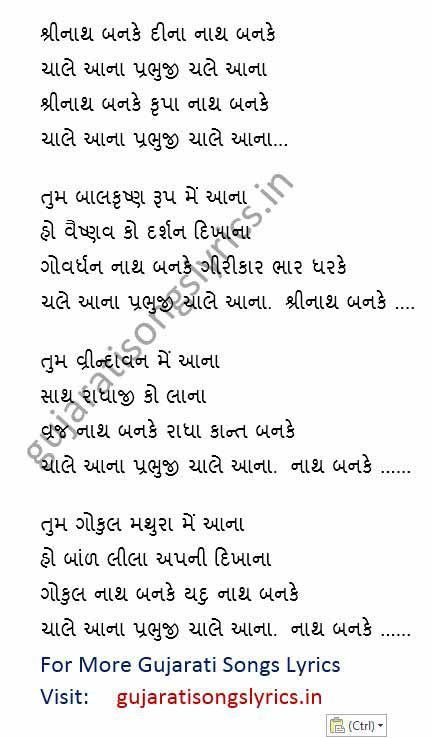 શ્રીનાથ બનકે દીના નાથ બનકે
ચાલે આના પ્રભુજી ચલે આના
શ્રીનાથ બનકે કૃપા નાથ બનકે
ચાલે આના પ્રભુજી ચાલે આના...
તુમ બાલકૃષ્ણ રૂપ મેં આના
હો વૈષ્ણવ કો દર્શન દિખાના
ગોવર્ધન નાથ બનકે ગીરીકાર ભાર ધરકે
ચલે આના પ્રભુજી ચાલે આના. શ્રીનાથ બનકે ....
તુમ વ્રીન્દાવન મેં આના
સાથ રાધાજી કો લાના
વ્રજ નાથ બનકે રાધા કાન્ત બનકે
ચાલે આના પ્રભુજી ચાલે આના. નાથ બનકે ......
તુમ ગોકુલ મથુરા મેં આના
હો બાંળ લીલા અપની દિખાના
ગોકુલ નાથ બનકે યદુ નાથ બનકે
ચાલે આના પ્રભુજી ચાલે આના. નાથ બનકે ......
For More Gujarati Songs Lyrics
Visit: gujaratisongslyrics.in
gujaratisongslyrics.in
(Ctrl)